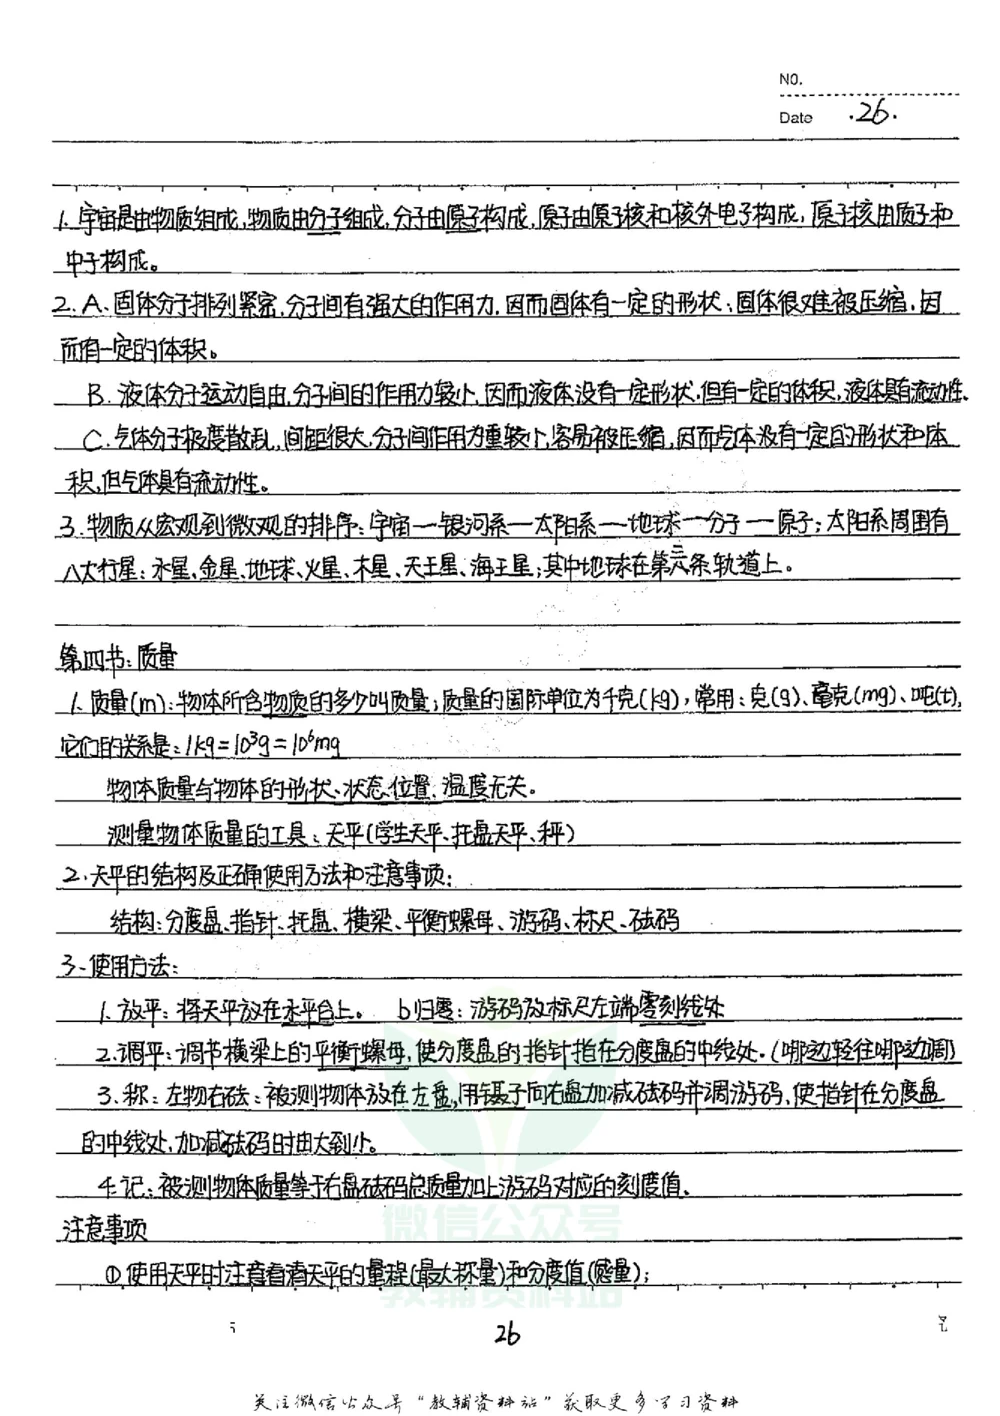 NO.
Date ·26·
1. 宇宙是由物质组成,物质由分子组成,分子由原子构成,原子由原子核和核外电子构成,原子核由质子和
中子构成。
2. A. 固体分子排列紧密,分子间有强大的作用力,因而固体有一定的形状;固体很难被压缩,因
而有一定的体积。
B. 液体分子运动自由,分子间的作用力较小,因而液体没有一定形状,但有一定的体积,液体具有流动性.
C. 气体分子极度散乱,间距很大,分子间作用力重较小,容易被压缩,因而气体没有一定的形状和体
积,但气体具有流动性。
3. 物质从宏观到微观的排序:宇宙—银河系—太阳系—地球—分子—原子;太阳系周围有
八大行星:水星、金星、地球、火星、木星、天王星、海王星;其中地球在第三条轨道上。
第四节:质量
1. 质量(m):物体所含物质的多少叫质量;质量的国际单位为千克(kg),常用:克(g)、毫克(mg)、吨(t),
它们的关系是:1kg=10³g=10⁶mg
物体质量与物体的形状、状态、位置、温度无关。
测量物体质量的工具:天平(学生天平、托盘天平、秤)
2. 天平的结构及正确使用方法和注意事项:
结构:分度盘、指针、托盘、横梁、平衡螺母、游码、标尺、砝码
3. 使用方法:
1. 放平:将天平放在水平台上。 b归零:游码放标尺左端零刻线处
2. 调平:调节横梁上的平衡螺母,使分度盘的指针指在分度盘的中线处.(哪边轻往哪边调)
3. 称:左物右砝:被测物体放在左盘,用镊子向右盘加减砝码并调游码,使指针在分度盘
的中线处,加减砝码时由大到小。
4. 记:被测物体质量等于右盘砝码总质量加上游码对应的刻度值.
注意事项
① 使用天平时注意看清天平的量程(最大称量)和分度值(感量);
微信公众号
教辅资料站
26
关注微信公众号“教辅资料站”获取更多学习资料